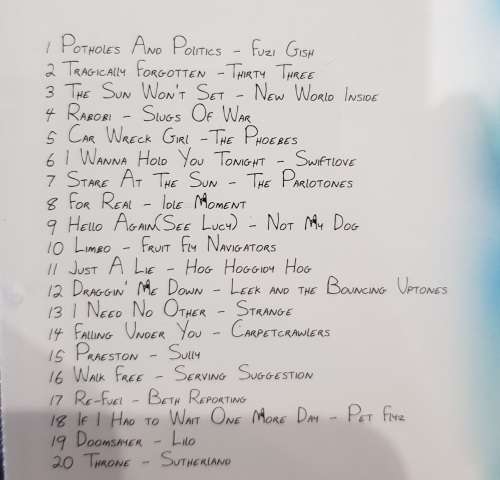 1 Potholes And Politics - Fuzi Gish
2 Tragically Forgotten - Thirty Three
3 The Sun Won't Set - New World Inside
4 Rabobi - Slugs Of War
5 Car Wreck Girl - The Phoebes
6 I Wanna Hold You Tonight - Swiftlove
7 Stare At The Sun - The Parlotones
8 For Real - Idle Moment
9 Hello Again(See Lucy) - Not My Dog
10 Limbo - Fruit Fly Navigators
11 Just A Lie - Hog Hoggidy Hog
12 Draggin' Me Down - Leek and the Bouncing Uptones
13 I Need No Other - Strange
14 Falling Under You - Carpetcrawlers
15 Praeston - Sully
16 Walk Free - Serving Suggestion
17 Re-Fuel - Beth Reporting
18 If I Had to Wait One More Day - Pet Flyz
19 Doomsayer - Lilo
20 Throne - Sutherland